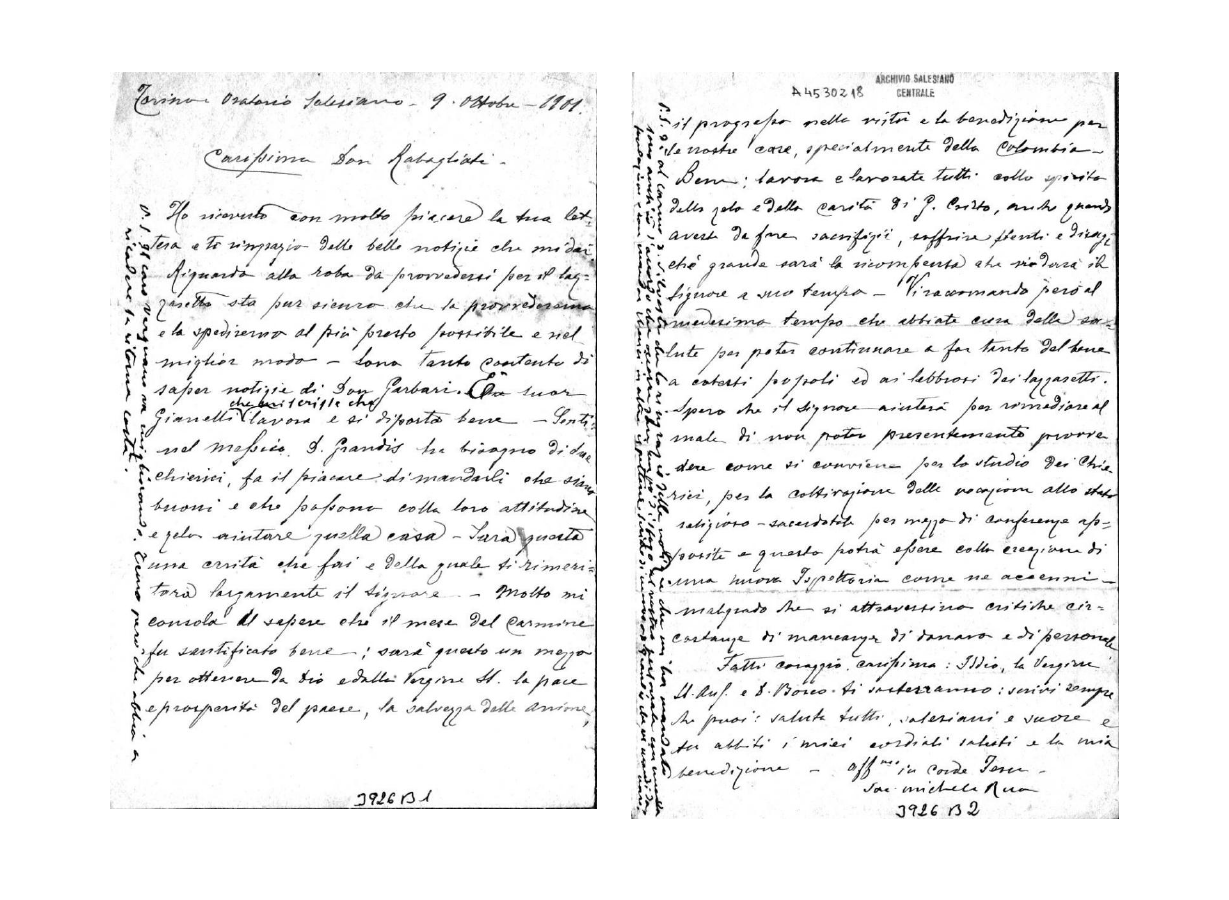 Torino - Oratorio Salesiano - 9 - Ottobre - 1901.
Carissimo Don Rabagliati -
Ho ricevuto con molto piacere la tua let-
tera e ti ringrazio delle belle notizie che mi dai
Riguardo alla roba da provvedersi per il laz-
zaretto sta pur sicuro che la provvederemo
e la spediremo al più presto possibile e nel
miglior modo - Sono tanto contento di
saper notizie di Don Garbari. E suor
che mi scrisse che
Gianelli lavora e si diporta bene - Senti:
nel Messico D. Grandis ha bisogno di due
chierici, fa il piacere di mandarli che siano
buoni e che possono colla loro attitudine
e zelo aiutare quella casa - Sarà questa
una carità che fai e della quale ti rimeri-
terà largamente il Signore. - Molto mi
consola il sapere che il mese del Carmine
fu santificato bene; sarà questo un mezzo
per ottenere da Dio e dalla Vergine SS. la pace
e prosperità del paese, la salvezza delle anime,
P. S. Il caro Vergnano va migliorando,
temo però che abbia a
ricadere se ritorna costì.
3926 B 1
ARCHIVIO SALESIANO
CENTRALE
A4530218
il progresso nella virtù e la benedizione per
le nostre case, specialmente della Colombia -
Bene; lavora e lavorate tutti collo spirito
dello zelo e della carità di G. Cristo, anche quando
aveste da fare sacrifizii, soffrire stenti e disagi
chè grande sarà la ricompensa che vi darà il
Signore a suo tempo - Vi raccomando però al
medesimo tempo che abbiate cura della sa-
lute per poter continuare a far tanto del bene
a cotesti popoli ed ai lebbrosi dei lazzaretti.
Spero che il Signore aiuterà per rimediare al
male di non poter presentemente provve
dere come si conviene per lo studio dei Chie
rici, per la coltivazione delle vocazioni allo stato
religioso-sacerdotale per mezzo di conferenze ap-
posite e questo potrà essere colla creazione di
una nuova Ispettoria come ne accenni -
malgrado che si attraversino critiche cir-
costanze di mancanza di danaro e di personale
Fatti coraggio, carissimo: Iddio, la Vergine
SS. Aus. e D. Bosco ti sosterranno: scrivi sempre
che puoi: saluta tutti, salesiani e suore e
tu abbiti i miei cordiali saluti e la mia
benedizione - aff.mo in Corde Jesu -
Sac. Michele Rua
3926 B 2